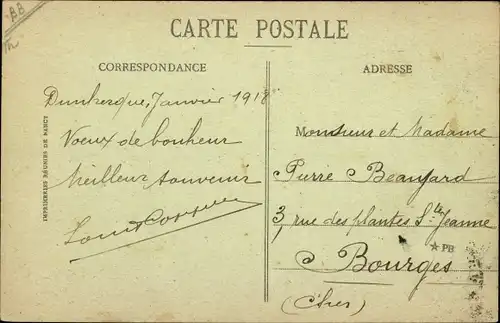 BB
CARTE POSTALE
CORRESPONDANCE
Dunkerque, Janvier 1918
Voeux de bonheur
Meilleur souvenir
IMPRIMERIES RÉUNIES DE NANCY
ADRESSE
Monsieur et Madame
Pierre Beaujard
3, rue des plantes Ste Jeanne
PB
Bourges
(Cher)